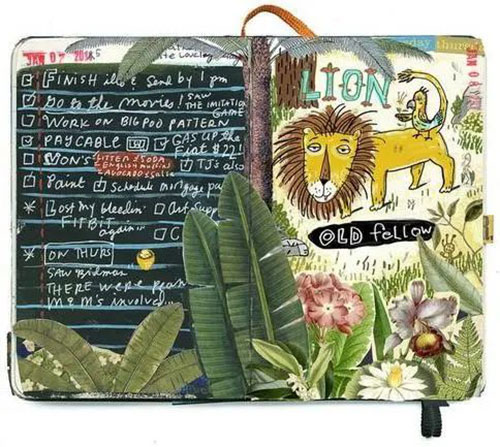 JAN 07 2015
FINISH illo & send by 1 pm
Go to the movies! SAW THE IMITATION GAME
WORK ON BIG POD PATTERN
PAY CABLE GAS UP the Fiat $22!
VON'S LITTER & SODA
ENGLISH muffins
AVOCADO & SALSA
TJ's also
Paint Schedule mortgage pa
Lost my bleedin'
FITBIT
again
ON THURS
SAW Birdman
THERE were
M&M'S involved
LION
OLD fellow